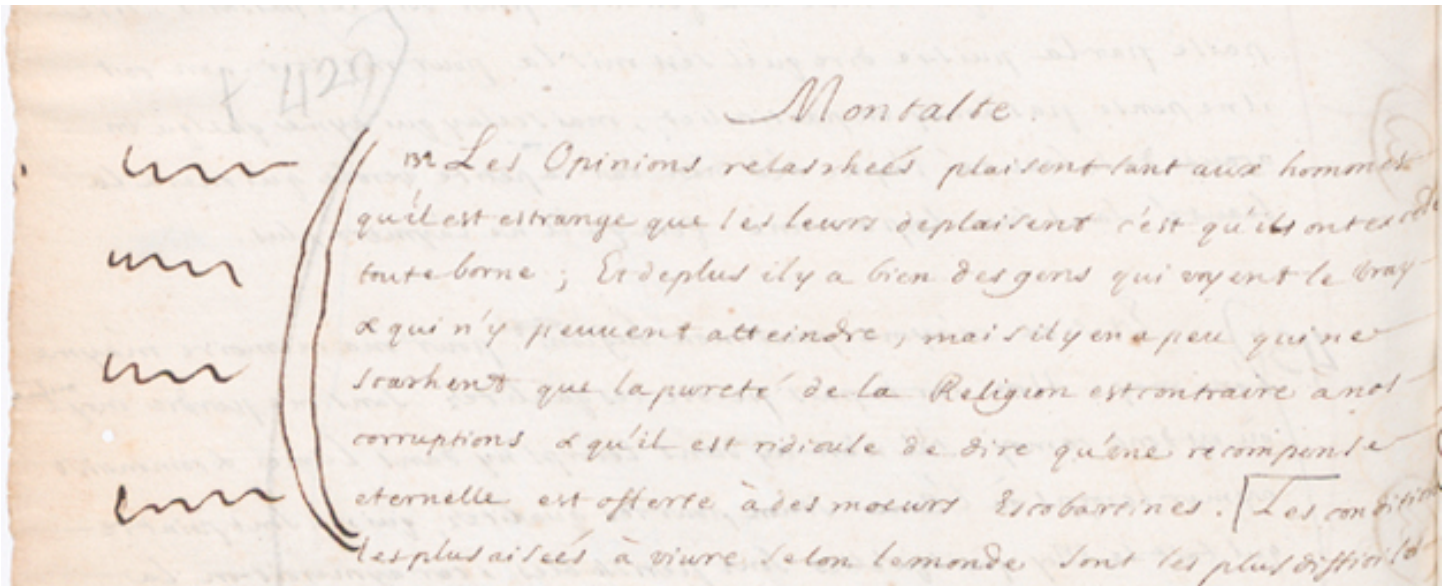 + 429
Montalte
Les Opinions relaschées plaisent tant aux hommes
qu'il est estrange que les leurs deplaisent c'est qu'ils ont excedé
toute borne ; Et deplus il y a bien des gens qui voyent le vray
& qui n'y peuuent atteindre, mais il y en a peu qui ne
scachent que la pureté de la Religion est contraire a nos
corruptions & qu'il est ridicule de dire qu'une recompense
eternelle est offerte à des moeurs Escobartines. Les conditions
les plus aisées à viure selon le monde sont les plus difficiles